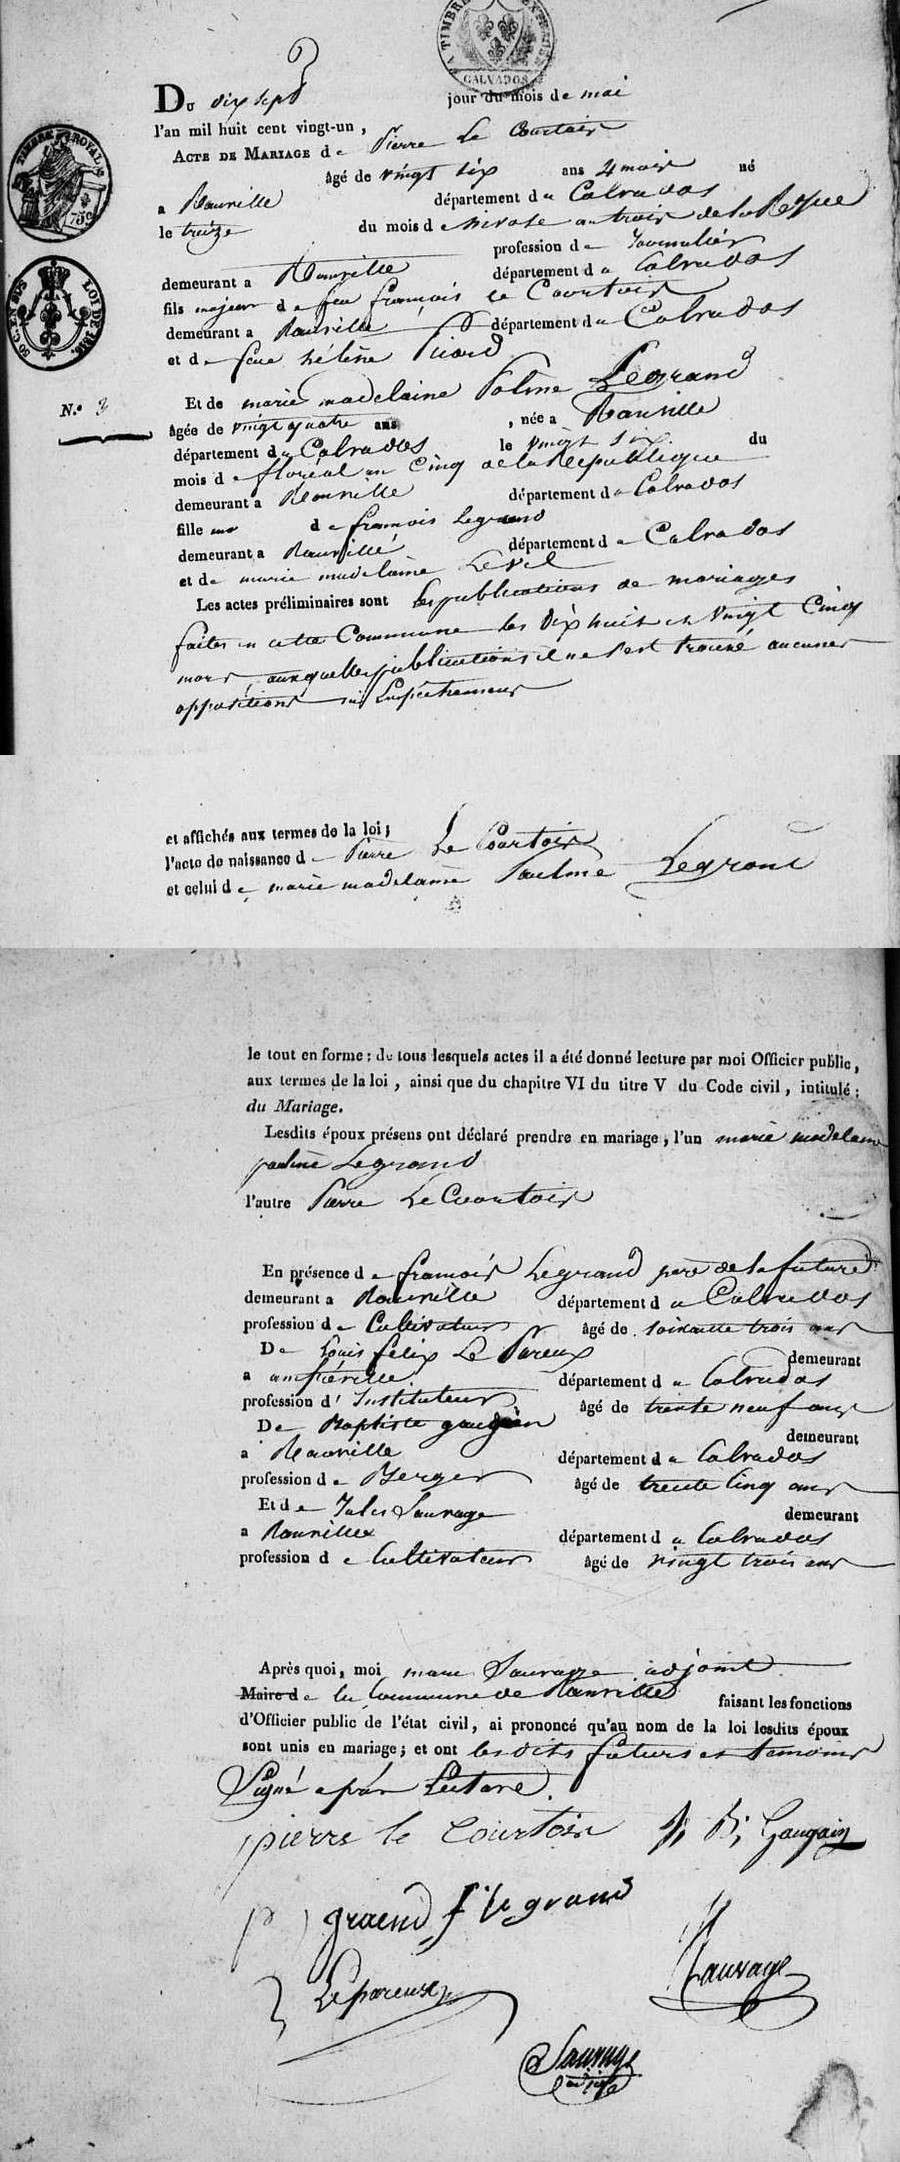 A TIMBRE EXTR
CALVADOS
Du dix sept jour du mois de mai
l'an mil huit cent vingt-un,
ACTE DE MARIAGE de Pierre Le Courtois
âgé de vingt six ans 4 mois né
a Ranville département du Calvados
le treize du mois de nivose an trois de la Repque
profession de Journalier
demeurant a Ranville département du Calvados
fils majeur de feu françois Le Courtois
demeurant a Ranville département du Calvados
et de feue hélène Picard
Et de marie madelaine Poline Legrand
âgée de vingt quatre ans, née a Ranville
département du Calvados le vingt six du
mois de floréal an Cinq de la Republique
demeurant a Ranville département du Calvados
fille de francois Legrand
demeurant a Ranville département du Calvados
et de marie madelaine Level
Les actes préliminaires sont les publications de mariages
faites en cette Commune les Dix huit et Vingt Cinq
mars, auxquelles publications il ne s'est trouvé aucunes
oppositions ni Empêchemens
TIMBRE ROYAL
75c
50 C. EN SUS
LOI DE 1816
N.o 3
et affichés aux termes de la loi;
l'acte de naissance de Pierre Le Courtois
et celui de marie madelaine Pauline Legrand
le tout en forme: de tous lesquels actes il a été donné lecture par moi Officier public,
aux termes de la loi, ainsi que du chapitre VI du titre V du Code civil, intitulé:
du Mariage.
Lesdits époux présens ont déclaré prendre en mariage, l'un marie madelaine
pauline Legrand
l'autre Pierre Le Courtois
En présence de francois Legrand pere de la future
demeurant a Ranville département du Calvados
profession de Cultivateur âgé de soixante trois ans
De Louis felix Le Pareux demeurant
a amfréville département du Calvados
profession d'Instituteur âgé de trente neuf ans
De Baptiste gaugain demeurant
a Ranville département du Calvados
profession de Berger âgé de trente Cinq ans
Et de Jules Sauvage demeurant
a Ranville département du Calvados
profession de Cultivateur âgé de vingt trois ans
Après quoi, moi marc Sauvage adjoint
Maire de la Commune de Ranville faisant les fonctions
d'Officier public de l'état civil, ai prononcé qu'au nom de la loi lesdits époux
sont unis en mariage; et ont lesdits futurs et temoins
Signé apres Lecture.
pierre le Courtois J, B, Gaugain
p graend f le grand
Lepareux Sauvage
Sauvage
adjoint